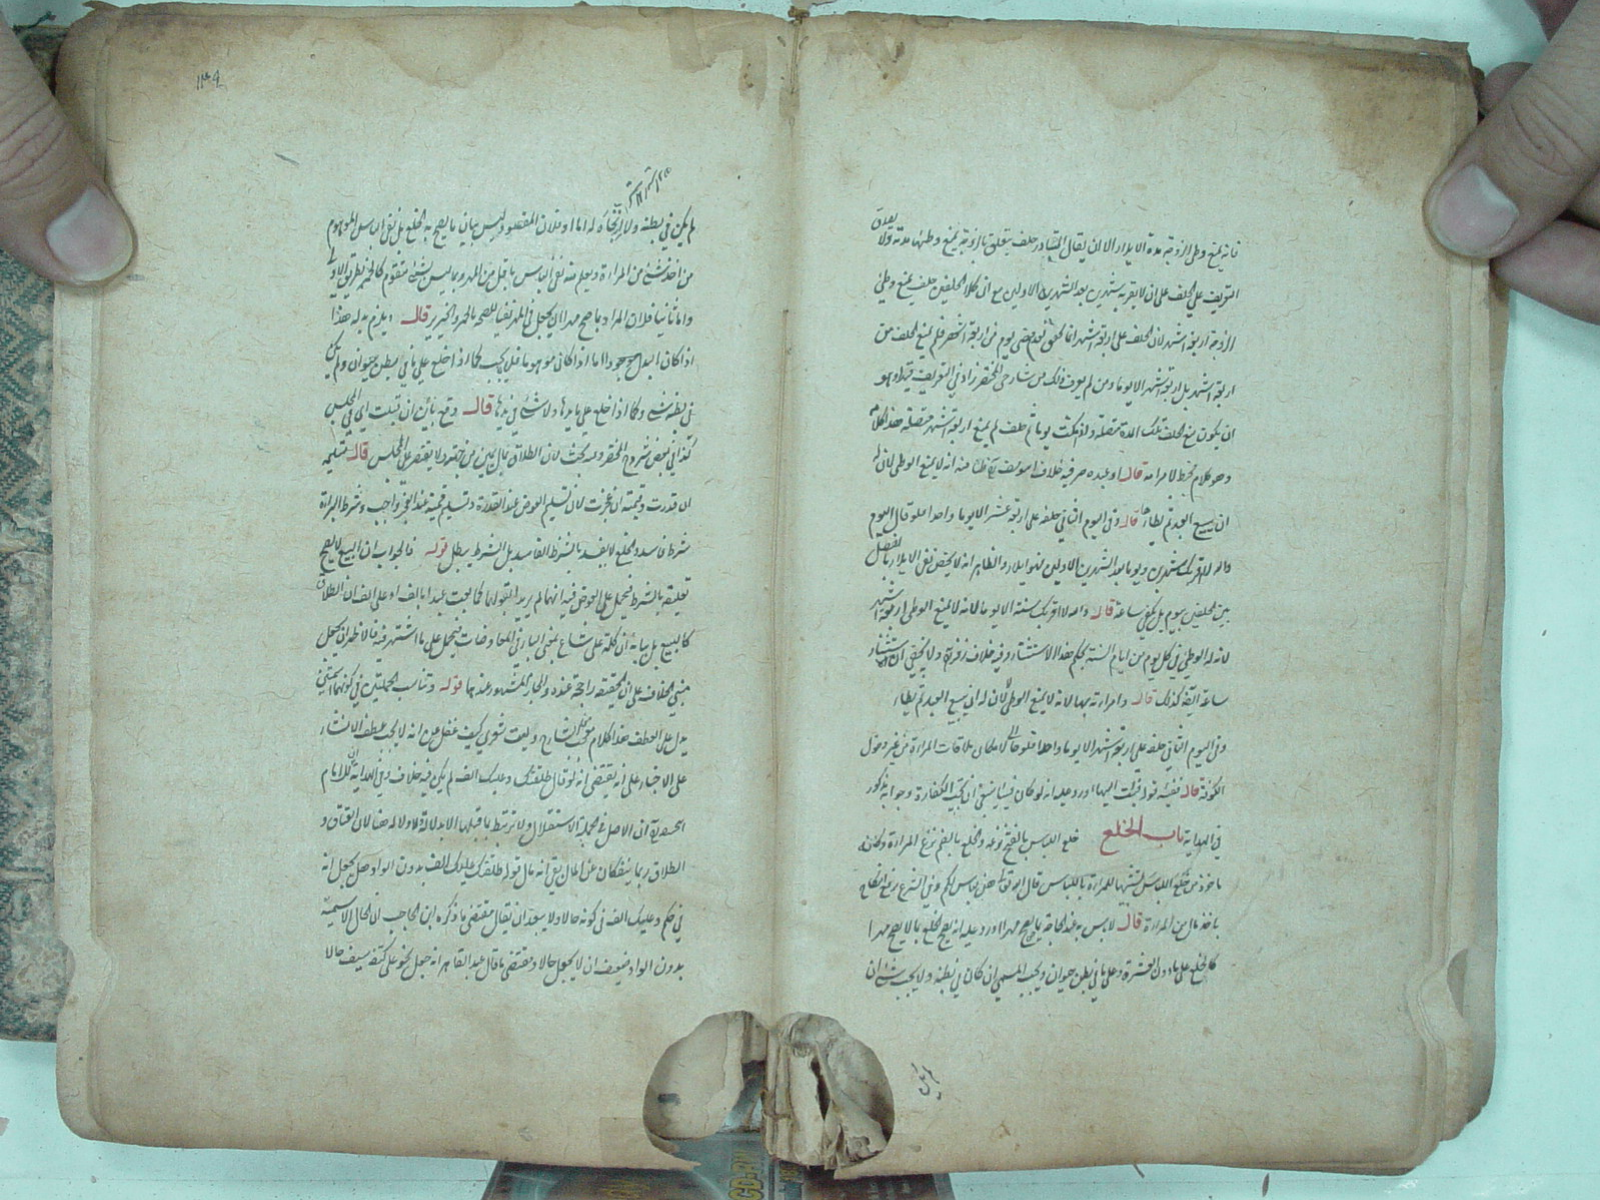 فانه يمنع وطئ الزوجة مدة الايلاء الا ان يقال المتبادر حلف يتعلق بالزوجة يمنع وطئها مدته ولا يصدق
التعريف على الحلف على ان لا يقربها شهرين بعد الشهرين الاولين مع ان كلا الحلفين حلف يمنع وطئ
الزوجة اربعة اشهر لان الحلف على اربعة اشهر انما تحقق بعد مضي يوم من اربعة اشهر فلم يمنع الحلف من
اربعة اشهر بل اربعة اشهر الا يوما ومن لم يعرف ذلك من شارحي المختصر زاد في التعريف قيدا وهو
ان يكون منع الحلف تلك المدة متصلة ولو مكث يوما ثم حلف لم يمنع اربعة اشهر متصلة هذا كلامه
وهو كلام مختبط لا مرامه قال او عبده حر فيه خلاف ابو يوسف منه انه لا يمنع الوطئ لان له
ان يبيع العبد ثم يطأها قال وفي اليوم الثاني حلفه على اربعة اشهر الا يوما واحدا فلو قال اليوم
والله لا اقربك شهرين ويوما بعد الشهرين الاولين فهو ايلاء والظاهر انه لا يختص نفي الايلاء بالفصل
بين الحلفين بيوم بل يكفي ساعة قال والله لا اقربك سنة الا يوما لانه لا يمنع الوطئ اربعة اشهر
لانه له الوطئ في كل يوم من ايام السنة بحكم هذا الاستثناء وفيه خلاف زفر ولا يخفى ان استثناء
ساعة ايضا كذلك قال وامرأته بها لانه لا يمنع الوطئ لان له ان يبيع العبد ثم يطأ
وفي اليوم الثاني حلفه على اربعة اشهر الا يوما واحدا لامكان ملاقات المرأة من غير دخول
الكوفة قال ففيئه قوله فئت اليها اورد عليه انه لو كان فيئا ينبغي ان تجب الكفارة وجوابه مذكور
في الهداية باب الخلع خلع اللباس بالفتح نزعه والخلع بالضم نزع المرأة
مأخوذ من خلع اللباس لتشبيها للمرأة باللباس قال الله تعالى هن لباس لكم وفي الشرع رفع النكاح
باخذ مال من المرأة قال لا بأس به عند الحاجة بما يصح مهرا اورد عليه انه يصح الخلع بما لا يصح مهرا
كالخلع على ما دون العشرة وعلى ما في بطن حيوان ويجب المسمى ان كان في بطنه ولا يجب شئ ان
لم يكن
١٣٩
لم يكن في بطنه ولا اما اولا فلان المقصود ليس بيان ما يصح به الخلع بل نفي البأس الموهوم
من اخذ شئ من المرأة ويعلم منه نفي البأس باقل من المهر وبما ليس بشئ متقوم كالخمر بطريق الاولى
واما ثانيا فلان المراد بما صح مهرا ان يجعل في المهر نفيا للصحة بالخمر والخنزير قال ويلزم بدله هذا
اذا كان البدل موجودا اما اذا كان موهوما فلم يجب كما اذا خلع على ما في بطن حيوان ولم يكن
في بطنه شئ وكما اذا خلع على ما يدها ولا شئ في يدها قال وقع بائن ان قبلت اي في المجلس
كذا في بعض شروح المختصر وفيه بحث لان الطلاق بمال يمين من جهته ولا يقتصر على المجلس قال تسليمه
ان قدرت وقيمته ان عجزت لان تسليم العوض عند القدرة وتسليم قيمته عند العجز واجب وشرط البراءة
شرط فاسد والخلع لا يفسد بالشرط الفاسد بل الشرط يبطل قوله فالجواب ان البيع لا يصح
تعليقه بالشرط فيحمل على العوض فيه انهما لم يريدا بقولهما كما بعت عبدا بالف او على الف ان الطلاق
كالبيع بل بيانه ان كلمة على شاع بمعنى الباء في المعاوضات فيحمل على ما اشتهر فيه فالاظهر ان يجعل
مبنى الخلاف على ان الحقيقة راجحة عنده والمجاز المشهور عندهما قوله وتناسب الجملتين في كونهما اسميتين
يدل على العطف هذا الكلام من الشارح وليت شعري كيف غفل عن انه لا يجب عطف الانشاء
على الاخبار على انه يقتضي انه لو قال طلقتك وعليك الف لم يكن فيه خلاف وفي الهداية للامام
ان الاصل في الجملة الاستقلال ولا ترتبط بما قبلها الا بدلالة ولا دلالة هنا لان العتاق و
الطلاق ربما ينفكان عن المال بقي انه قال قوله طلقتك عليك الف بدون الواو هل يجعل انه
في حكم وعليك الف في كونه حالا ولا يبعد ان يقال مقتضى ما ذكره ابن الحاجب ان الحال الاسمية
بدون الواو ضعيف ان لا يجعل حالا ومقتضى ما قال عبد القاهر انه جعل نحو على كتفه سيف حالا